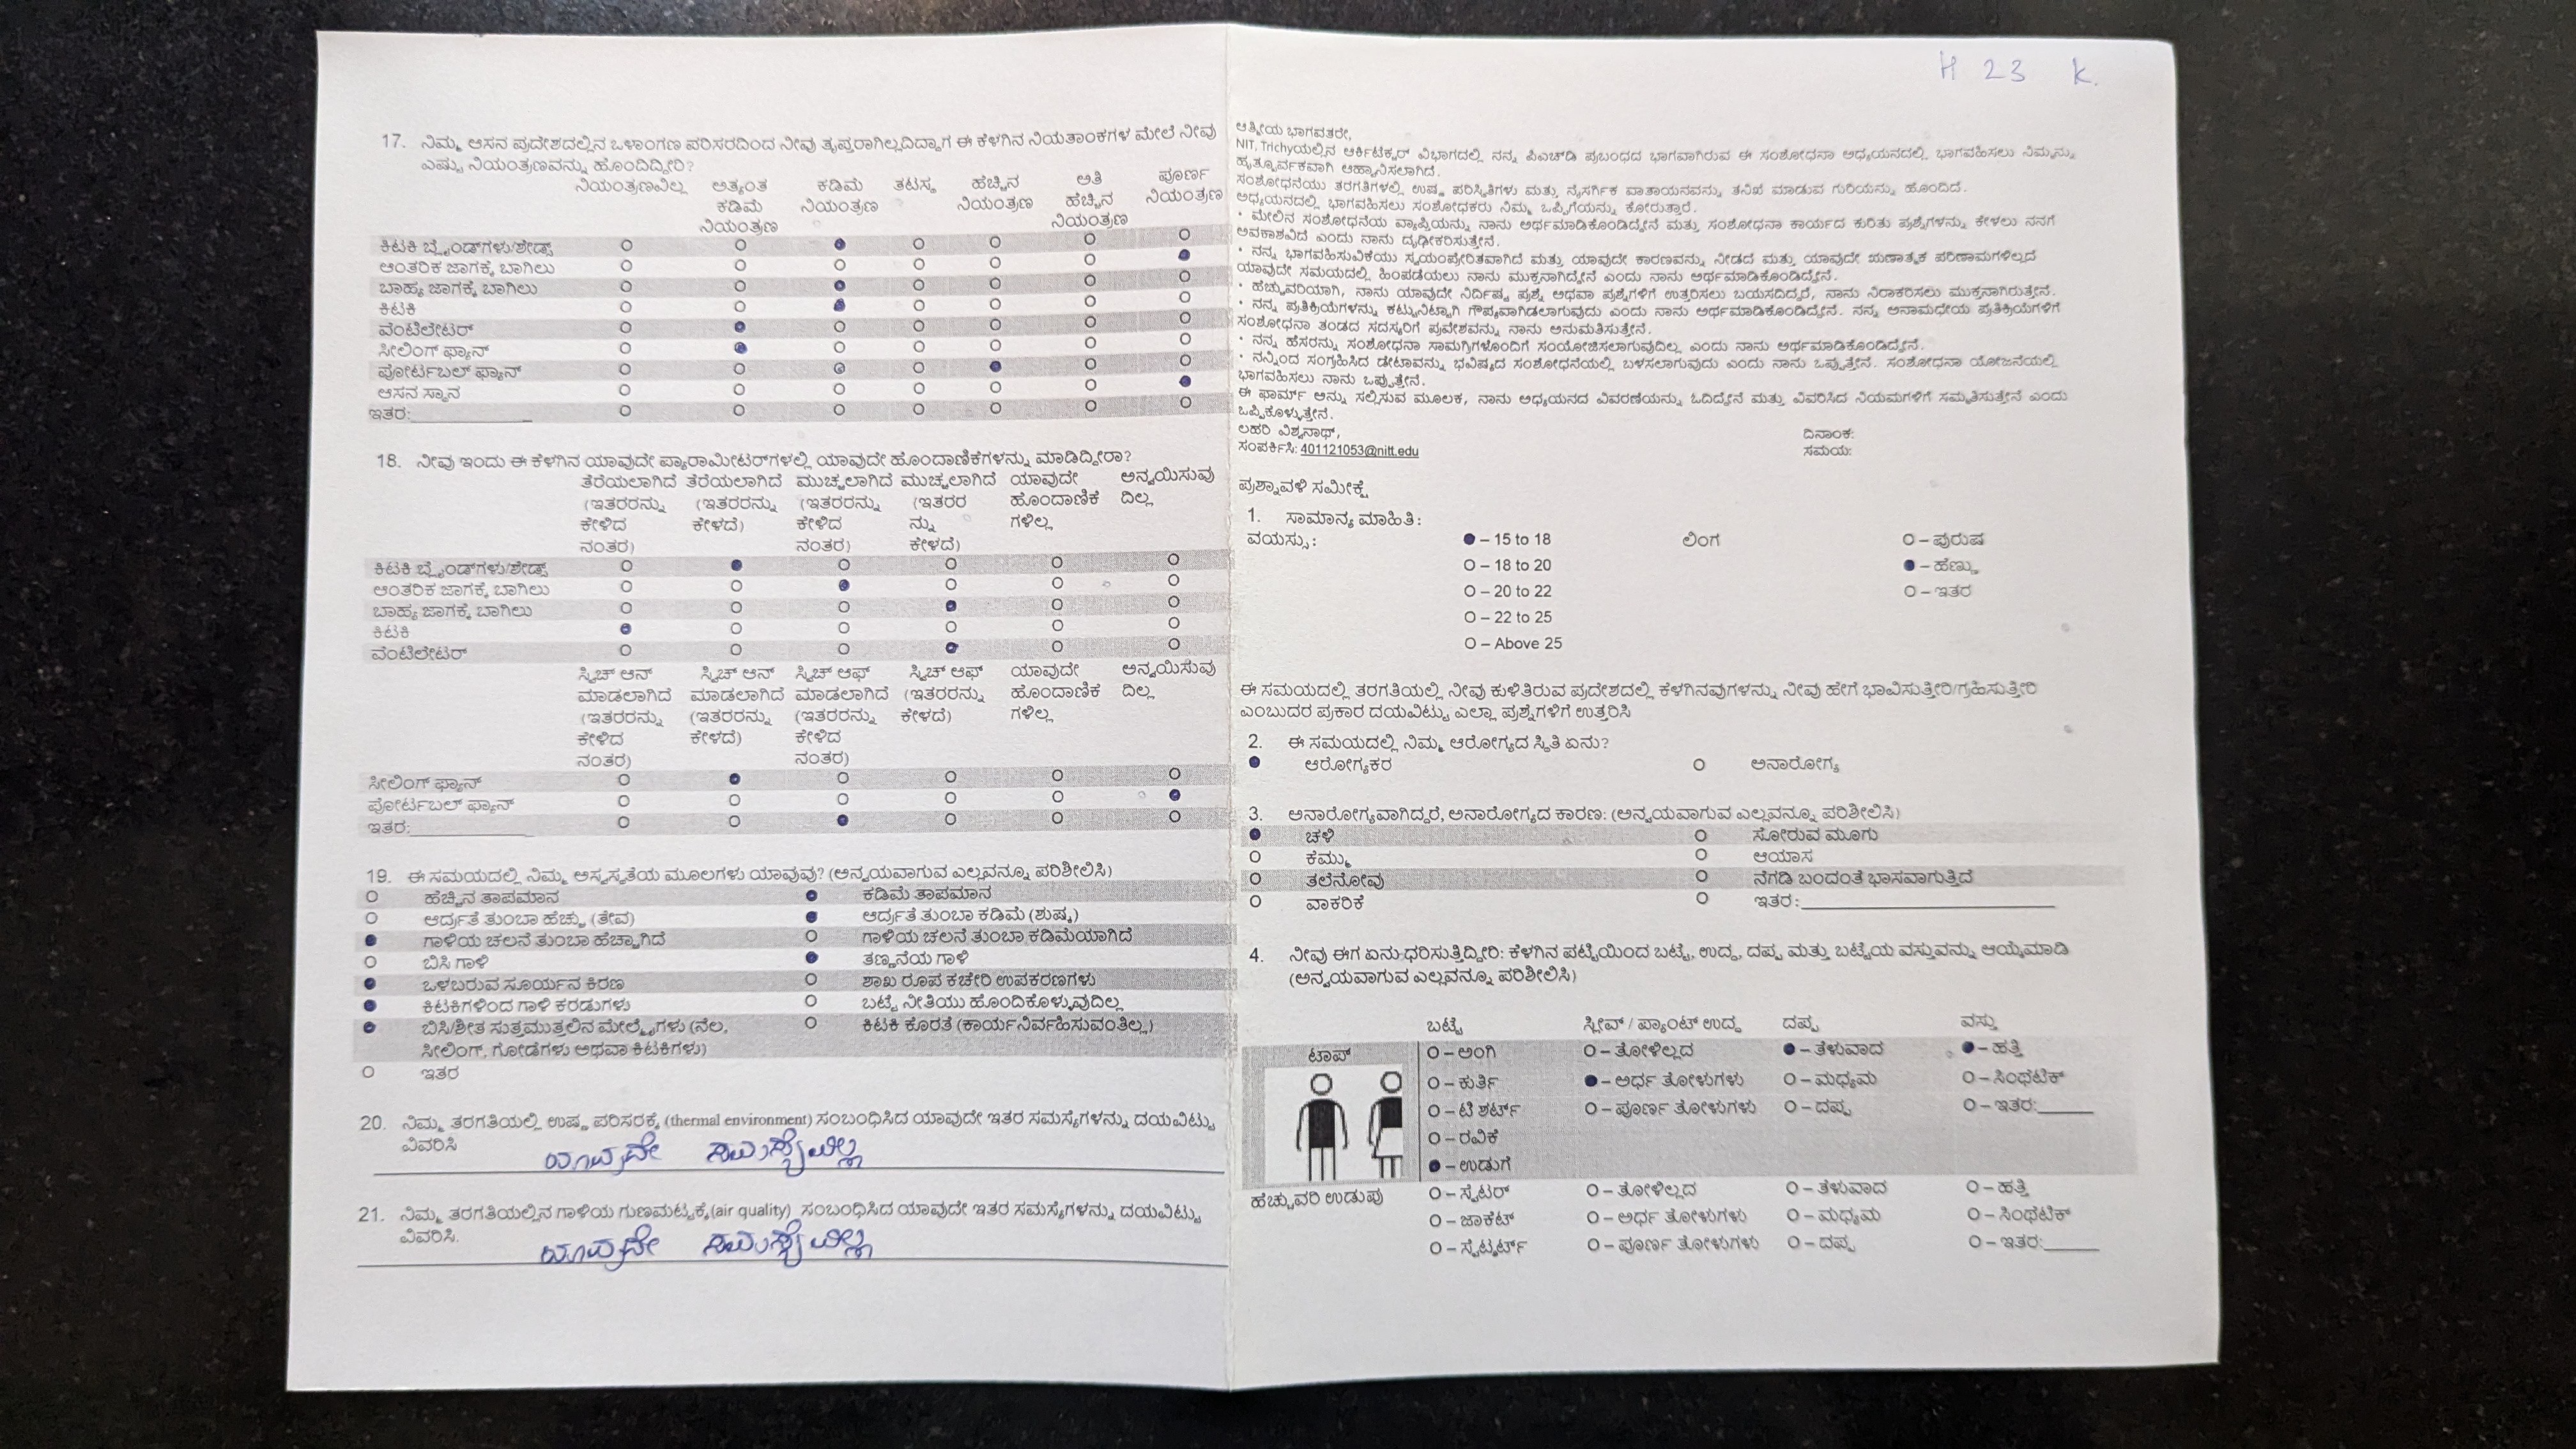 17. ನಿಮ್ಮ ಆಸನ ಪ್ರದೇಶದಲ್ಲಿನ ಒಳಾಂಗಣ ಪರಿಸರದಿಂದ ನೀವು ತೃಪ್ತರಾಗಿಲ್ಲದಿದ್ದಾಗ ಈ ಕೆಳಗಿನ ನಿಯತಾಂಕಗಳ ಮೇಲೆ ನೀವು
ಎಷ್ಟು ನಿಯಂತ್ರಣವನ್ನು ಹೊಂದಿದ್ದೀರಿ?
ನಿಯಂತ್ರಣವಿಲ್ಲ ಅತ್ಯಂತ ಕಡಿಮೆ ತಟಸ್ಥ ಹೆಚ್ಚಿನ ಅತಿ ಪೂರ್ಣ
ಕಡಿಮೆ ನಿಯಂತ್ರಣ ನಿಯಂತ್ರಣ ಹೆಚ್ಚಿನ ನಿಯಂತ್ರಣ
ನಿಯಂತ್ರಣ ನಿಯಂತ್ರಣ
ಕಿಟಕಿ ಬ್ಲೈಂಡ್‌ಗಳು/ಶೇಡ್ಸ್
ಆಂತರಿಕ ಜಾಗಕ್ಕೆ ಬಾಗಿಲು
ಬಾಹ್ಯ ಜಾಗಕ್ಕೆ ಬಾಗಿಲು
ಕಿಟಕಿ
ವೆಂಟಿಲೇಟರ್
ಸೀಲಿಂಗ್ ಫ್ಯಾನ್
ಪೋರ್ಟಬಲ್ ಫ್ಯಾನ್
ಆಸನ ಸ್ಥಾನ
ಇತರ:
18. ನೀವು ಇಂದು ಈ ಕೆಳಗಿನ ಯಾವುದೇ ಪ್ಯಾರಾಮೀಟರ್‌ಗಳಲ್ಲಿ ಯಾವುದೇ ಹೊಂದಾಣಿಕೆಗಳನ್ನು ಮಾಡಿದ್ದೀರಾ?
ತೆರೆಯಲಾಗಿದೆ ತೆರೆಯಲಾಗಿದೆ ಮುಚ್ಚಲಾಗಿದೆ ಮುಚ್ಚಲಾಗಿದೆ ಯಾವುದೇ ಅನ್ವಯಿಸುವು
(ಇತರರನ್ನು (ಇತರರನ್ನು (ಇತರರನ್ನು (ಇತರರ ಹೊಂದಾಣಿಕೆ ದಿಲ್ಲ
ಕೇಳಿದ ಕೇಳದೆ) ಕೇಳಿದ ನ್ನು ಗಳಿಲ್ಲ
ನಂತರ) ನಂತರ) ಕೇಳದೆ)
ಕಿಟಕಿ ಬ್ಲೈಂಡ್‌ಗಳು/ಶೇಡ್ಸ್
ಆಂತರಿಕ ಜಾಗಕ್ಕೆ ಬಾಗಿಲು
ಬಾಹ್ಯ ಜಾಗಕ್ಕೆ ಬಾಗಿಲು
ಕಿಟಕಿ
ವೆಂಟಿಲೇಟರ್
ಸ್ವಿಚ್ ಆನ್ ಸ್ವಿಚ್ ಆನ್ ಸ್ವಿಚ್ ಆಫ್ ಸ್ವಿಚ್ ಆಫ್ ಯಾವುದೇ ಅನ್ವಯಿಸುವು
ಮಾಡಲಾಗಿದೆ ಮಾಡಲಾಗಿದೆ ಮಾಡಲಾಗಿದೆ (ಇತರರನ್ನು ಹೊಂದಾಣಿಕೆ ದಿಲ್ಲ
(ಇತರರನ್ನು (ಇತರರನ್ನು (ಇತರರನ್ನು ಕೇಳದೆ) ಗಳಿಲ್ಲ
ಕೇಳಿದ ಕೇಳದೆ) ಕೇಳಿದ
ನಂತರ) ನಂತರ)
ಸೀಲಿಂಗ್ ಫ್ಯಾನ್
ಪೋರ್ಟಬಲ್ ಫ್ಯಾನ್
ಇತರ:
19. ಈ ಸಮಯದಲ್ಲಿ ನಿಮ್ಮ ಅಸ್ವಸ್ಥತೆಯ ಮೂಲಗಳು ಯಾವುವು? (ಅನ್ವಯವಾಗುವ ಎಲ್ಲವನ್ನೂ ಪರಿಶೀಲಿಸಿ)
ಹೆಚ್ಚಿನ ತಾಪಮಾನ ಕಡಿಮೆ ತಾಪಮಾನ
ಆರ್ದ್ರತೆ ತುಂಬಾ ಹೆಚ್ಚು (ತೇವ) ಆರ್ದ್ರತೆ ತುಂಬಾ ಕಡಿಮೆ (ಶುಷ್ಕ)
ಗಾಳಿಯ ಚಲನೆ ತುಂಬಾ ಹೆಚ್ಚಾಗಿದೆ ಗಾಳಿಯ ಚಲನೆ ತುಂಬಾ ಕಡಿಮೆಯಾಗಿದೆ
ಬಿಸಿ ಗಾಳಿ ತಣ್ಣನೆಯ ಗಾಳಿ
ಒಳಬರುವ ಸೂರ್ಯನ ಕಿರಣ ಶಾಖ ರೂಪ ಕಚೇರಿ ಉಪಕರಣಗಳು
ಕಿಟಕಿಗಳಿಂದ ಗಾಳಿ ಕರಡುಗಳು ಬಟ್ಟೆ ನೀತಿಯು ಹೊಂದಿಕೊಳ್ಳುವುದಿಲ್ಲ
ಬಿಸಿ/ಶೀತ ಸುತ್ತಮುತ್ತಲಿನ ಮೇಲ್ಮೈಗಳು (ನೆಲ, ಕಿಟಕಿ ಕೊರತೆ (ಕಾರ್ಯನಿರ್ವಹಿಸುವಂತಿಲ್ಲ)
ಸೀಲಿಂಗ್, ಗೋಡೆಗಳು ಅಥವಾ ಕಿಟಕಿಗಳು)
ಇತರ
20. ನಿಮ್ಮ ತರಗತಿಯಲ್ಲಿ ಉಷ್ಣ ಪರಿಸರಕ್ಕೆ (thermal environment) ಸಂಬಂಧಿಸಿದ ಯಾವುದೇ ಇತರ ಸಮಸ್ಯೆಗಳನ್ನು ದಯವಿಟ್ಟು
ವಿವರಿಸಿ
ಯಾವುದೇ ಸಮಸ್ಯೆಯಿಲ್ಲ
21. ನಿಮ್ಮ ತರಗತಿಯಲ್ಲಿನ ಗಾಳಿಯ ಗುಣಮಟ್ಟಕ್ಕೆ (air quality) ಸಂಬಂಧಿಸಿದ ಯಾವುದೇ ಇತರ ಸಮಸ್ಯೆಗಳನ್ನು ದಯವಿಟ್ಟು
ವಿವರಿಸಿ.
ಯಾವುದೇ ಸಮಸ್ಯೆಯಿಲ್ಲ
H 23 K.
ಆತ್ಮೀಯ ಭಾಗವತರೇ,
NIT, Trichyಯಲ್ಲಿನ ಆರ್ಕಿಟೆಕ್ಚರ್ ವಿಭಾಗದಲ್ಲಿ ನನ್ನ ಪಿಎಚ್‌ಡಿ ಪ್ರಬಂಧದ ಭಾಗವಾಗಿರುವ ಈ ಸಂಶೋಧನಾ ಅಧ್ಯಯನದಲ್ಲಿ ಭಾಗವಹಿಸಲು ನಿಮ್ಮನ್ನು
ಹೃತ್ಪೂರ್ವಕವಾಗಿ ಆಹ್ವಾನಿಸಲಾಗಿದೆ.
ಸಂಶೋಧನೆಯು ತರಗತಿಗಳಲ್ಲಿ ಉಷ್ಣ ಪರಿಸ್ಥಿತಿಗಳು ಮತ್ತು ನೈಸರ್ಗಿಕ ವಾತಾಯನವನ್ನು ತನಿಖೆ ಮಾಡುವ ಗುರಿಯನ್ನು ಹೊಂದಿದೆ.
ಅಧ್ಯಯನದಲ್ಲಿ ಭಾಗವಹಿಸಲು ಸಂಶೋಧಕರು ನಿಮ್ಮ ಒಪ್ಪಿಗೆಯನ್ನು ಕೋರುತ್ತಾರೆ.
• ಮೇಲಿನ ಸಂಶೋಧನೆಯ ವ್ಯಾಪ್ತಿಯನ್ನು ನಾನು ಅರ್ಥಮಾಡಿಕೊಂಡಿದ್ದೇನೆ ಮತ್ತು ಸಂಶೋಧನಾ ಕಾರ್ಯದ ಕುರಿತು ಪ್ರಶ್ನೆಗಳನ್ನು ಕೇಳಲು ನನಗೆ
ಅವಕಾಶವಿದೆ ಎಂದು ನಾನು ದೃಢೀಕರಿಸುತ್ತೇನೆ.
• ನನ್ನ ಭಾಗವಹಿಸುವಿಕೆಯು ಸ್ವಯಂಪ್ರೇರಿತವಾಗಿದೆ ಮತ್ತು ಯಾವುದೇ ಕಾರಣವನ್ನು ನೀಡದೆ ಮತ್ತು ಯಾವುದೇ ಋಣಾತ್ಮಕ ಪರಿಣಾಮಗಳಿಲ್ಲದೆ
ಯಾವುದೇ ಸಮಯದಲ್ಲಿ ಹಿಂಪಡೆಯಲು ನಾನು ಮುಕ್ತನಾಗಿದ್ದೇನೆ ಎಂದು ನಾನು ಅರ್ಥಮಾಡಿಕೊಂಡಿದ್ದೇನೆ.
• ಹೆಚ್ಚುವರಿಯಾಗಿ, ನಾನು ಯಾವುದೇ ನಿರ್ದಿಷ್ಟ ಪ್ರಶ್ನೆ ಅಥವಾ ಪ್ರಶ್ನೆಗಳಿಗೆ ಉತ್ತರಿಸಲು ಬಯಸದಿದ್ದರೆ, ನಾನು ನಿರಾಕರಿಸಲು ಮುಕ್ತನಾಗಿರುತ್ತೇನೆ.
• ನನ್ನ ಪ್ರತಿಕ್ರಿಯೆಗಳನ್ನು ಕಟ್ಟುನಿಟ್ಟಾಗಿ ಗೌಪ್ಯವಾಗಿಡಲಾಗುವುದು ಎಂದು ನಾನು ಅರ್ಥಮಾಡಿಕೊಂಡಿದ್ದೇನೆ. ನನ್ನ ಅನಾಮಧೇಯ ಪ್ರತಿಕ್ರಿಯೆಗಳಿಗೆ
ಸಂಶೋಧನಾ ತಂಡದ ಸದಸ್ಯರಿಗೆ ಪ್ರವೇಶವನ್ನು ನಾನು ಅನುಮತಿಸುತ್ತೇನೆ.
• ನನ್ನ ಹೆಸರನ್ನು ಸಂಶೋಧನಾ ಸಾಮಗ್ರಿಗಳೊಂದಿಗೆ ಸಂಯೋಜಿಸಲಾಗುವುದಿಲ್ಲ ಎಂದು ನಾನು ಅರ್ಥಮಾಡಿಕೊಂಡಿದ್ದೇನೆ.
• ನನ್ನಿಂದ ಸಂಗ್ರಹಿಸಿದ ಡೇಟಾವನ್ನು ಭವಿಷ್ಯದ ಸಂಶೋಧನೆಯಲ್ಲಿ ಬಳಸಲಾಗುವುದು ಎಂದು ನಾನು ಒಪ್ಪುತ್ತೇನೆ. ಸಂಶೋಧನಾ ಯೋಜನೆಯಲ್ಲಿ
ಭಾಗವಹಿಸಲು ನಾನು ಒಪ್ಪುತ್ತೇನೆ.
ಈ ಫಾರ್ಮ್ ಅನ್ನು ಸಲ್ಲಿಸುವ ಮೂಲಕ, ನಾನು ಅಧ್ಯಯನದ ವಿವರಣೆಯನ್ನು ಓದಿದ್ದೇನೆ ಮತ್ತು ವಿವರಿಸಿದ ನಿಯಮಗಳಿಗೆ ಸಮ್ಮತಿಸುತ್ತೇನೆ ಎಂದು
ಒಪ್ಪಿಕೊಳ್ಳುತ್ತೇನೆ.
ಲಹರಿ ವಿಶ್ವನಾಥ್, ದಿನಾಂಕ:
ಸಂಪರ್ಕಿಸಿ: 401121053@nitt.edu ಸಮಯ:
ಪ್ರಶ್ನಾವಳಿ ಸಮೀಕ್ಷೆ
1. ಸಾಮಾನ್ಯ ಮಾಹಿತಿ:
ವಯಸ್ಸು: – 15 to 18 ಲಿಂಗ – ಪುರುಷ
– 18 to 20 – ಹೆಣ್ಣು
– 20 to 22 – ಇತರ
– 22 to 25
– Above 25
ಈ ಸಮಯದಲ್ಲಿ ತರಗತಿಯಲ್ಲಿ ನೀವು ಕುಳಿತಿರುವ ಪ್ರದೇಶದಲ್ಲಿ ಕೆಳಗಿನವುಗಳನ್ನು ನೀವು ಹೇಗೆ ಭಾವಿಸುತ್ತೀರಿ/ಗ್ರಹಿಸುತ್ತೀರಿ
ಎಂಬುದರ ಪ್ರಕಾರ ದಯವಿಟ್ಟು ಎಲ್ಲಾ ಪ್ರಶ್ನೆಗಳಿಗೆ ಉತ್ತರಿಸಿ
2. ಈ ಸಮಯದಲ್ಲಿ ನಿಮ್ಮ ಆರೋಗ್ಯದ ಸ್ಥಿತಿ ಏನು?
ಆರೋಗ್ಯಕರ ಅನಾರೋಗ್ಯ
3. ಅನಾರೋಗ್ಯವಾಗಿದ್ದರೆ, ಅನಾರೋಗ್ಯದ ಕಾರಣ: (ಅನ್ವಯವಾಗುವ ಎಲ್ಲವನ್ನೂ ಪರಿಶೀಲಿಸಿ)
ಚಳಿ ಸೋರುವ ಮೂಗು
ಕೆಮ್ಮು ಆಯಾಸ
ತಲೆನೋವು ನೆಗಡಿ ಬಂದಂತೆ ಭಾಸವಾಗುತ್ತಿದೆ
ವಾಕರಿಕೆ ಇತರ:
4. ನೀವು ಈಗ ಏನು ಧರಿಸುತ್ತಿದ್ದೀರಿ: ಕೆಳಗಿನ ಪಟ್ಟಿಯಿಂದ ಬಟ್ಟೆ, ಉದ್ದ, ದಪ್ಪ ಮತ್ತು ಬಟ್ಟೆಯ ವಸ್ತುವನ್ನು ಆಯ್ಕೆಮಾಡಿ
(ಅನ್ವಯವಾಗುವ ಎಲ್ಲವನ್ನೂ ಪರಿಶೀಲಿಸಿ)
ಬಟ್ಟೆ ಸ್ಲೀವ್ / ಪ್ಯಾಂಟ್ ಉದ್ದ ದಪ್ಪ ವಸ್ತು
ಟಾಪ್ – ಅಂಗಿ – ತೋಳಿಲ್ಲದ – ತೆಳುವಾದ – ಹತ್ತಿ
– ಕುರ್ತಿ – ಅರ್ಧ ತೋಳುಗಳು – ಮಧ್ಯಮ – ಸಿಂಥೆಟಿಕ್
– ಟಿ ಶರ್ಟ್ – ಪೂರ್ಣ ತೋಳುಗಳು – ದಪ್ಪ – ಇತರ:
– ರವಿಕೆ
– ಉಡುಗೆ
ಹೆಚ್ಚುವರಿ ಉಡುಪು – ಸ್ವೆಟರ್ – ತೋಳಿಲ್ಲದ – ತೆಳುವಾದ – ಹತ್ತಿ
– ಜಾಕೆಟ್ – ಅರ್ಧ ತೋಳುಗಳು – ಮಧ್ಯಮ – ಸಿಂಥೆಟಿಕ್
– ಸ್ವೆಟ್ಶರ್ಟ್ – ಪೂರ್ಣ ತೋಳುಗಳು – ದಪ್ಪ – ಇತರ: